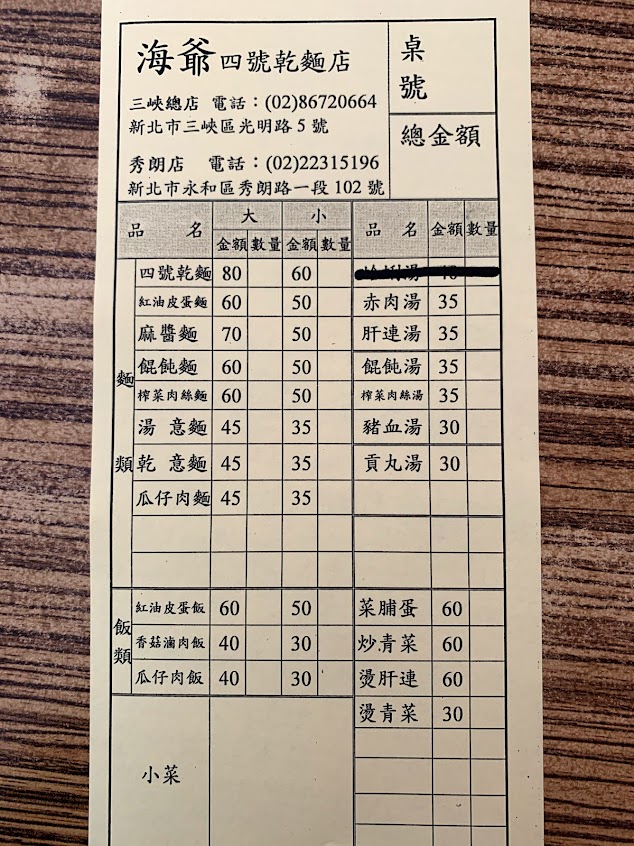 海爺四號乾麵店
三峽總店 電話：(02)86720664
新北市三峽區光明路5號
秀朗店 電話：(02)22315196
新北市永和區秀朗路一段102號
桌號
總金額
品名 大 小 品名 金額 數量
金額 數量 金額 數量
麵類
四號乾麵 80 60
紅油皮蛋麵 60 50 赤肉湯 35
麻醬麵 70 50 肝連湯 35
餛飩麵 60 50 餛飩湯 35
榨菜肉絲麵 60 50 榨菜肉絲湯 35
湯意麵 45 35 豬血湯 30
乾意麵 45 35 貢丸湯 30
瓜仔肉麵 45 35
飯類
紅油皮蛋飯 60 50 菜脯蛋 60
香菇滷肉飯 40 30 炒青菜 60
瓜仔肉飯 40 30 燙肝連 60
燙青菜 30
小菜